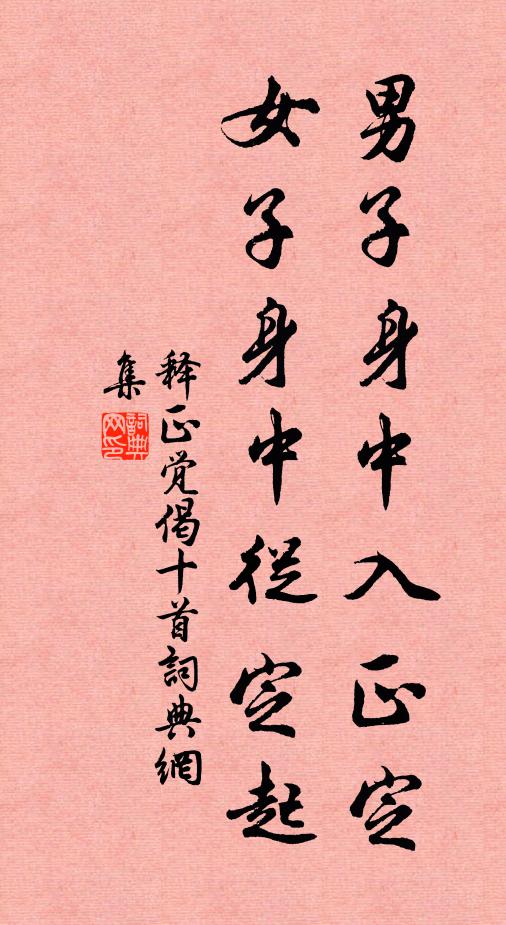 男子身中入正定
女子身中從定起
释正觉偈十首詞典網
集
詞典网印